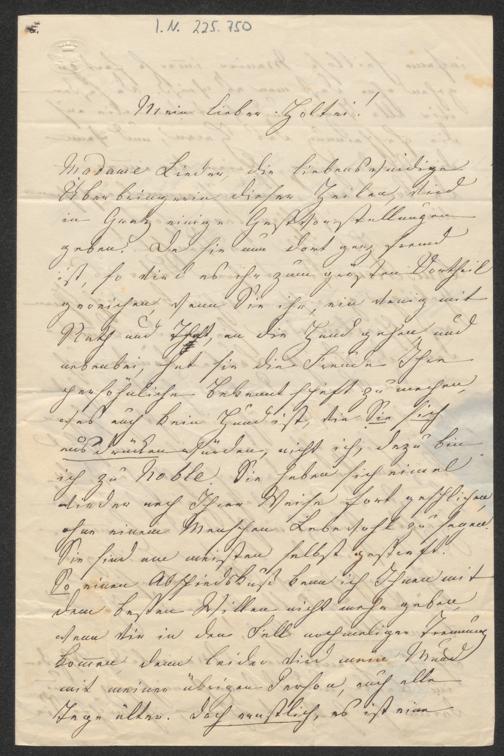 I.N. 225.750
Mein lieber Holtei!
Madame Lieder, die liebenswürdige
Überbringerin dieser Zeilen, wird
in Gratz einige Gastvorstellungen
geben. Da sie nun dort ganz fremd
ist, so wird es ihr zum großen Vortheil
gereichen wenn Sie ihr, ein wenig mit
Rath und That, an die Hand gehen und
nebenbei, hat sie die Freude Ihre
persöhnliche Bekanntschaft zu machen,
was auch kein Hund ist, wie Sie sich
ausdrücken würden, nicht ich, dazu bin
ich zu Noble. Sie haben sich einmal
wieder nach Ihrer Weise fort geschlichen,
ohne einem Menschen Lebewohl zu sagen.
Sie sind am meisten selbst gestraft.
So einen Abschiedskuß kann ich Ihnen mit
dem besten Willen nicht mehr geben,
wenn wir in den Fall nochmaliger Trennung
kommen denn leider wird mein Mund
mit meiner übrigen Person, auch alle
Tage älter. Doch ernstlich, es ist eine